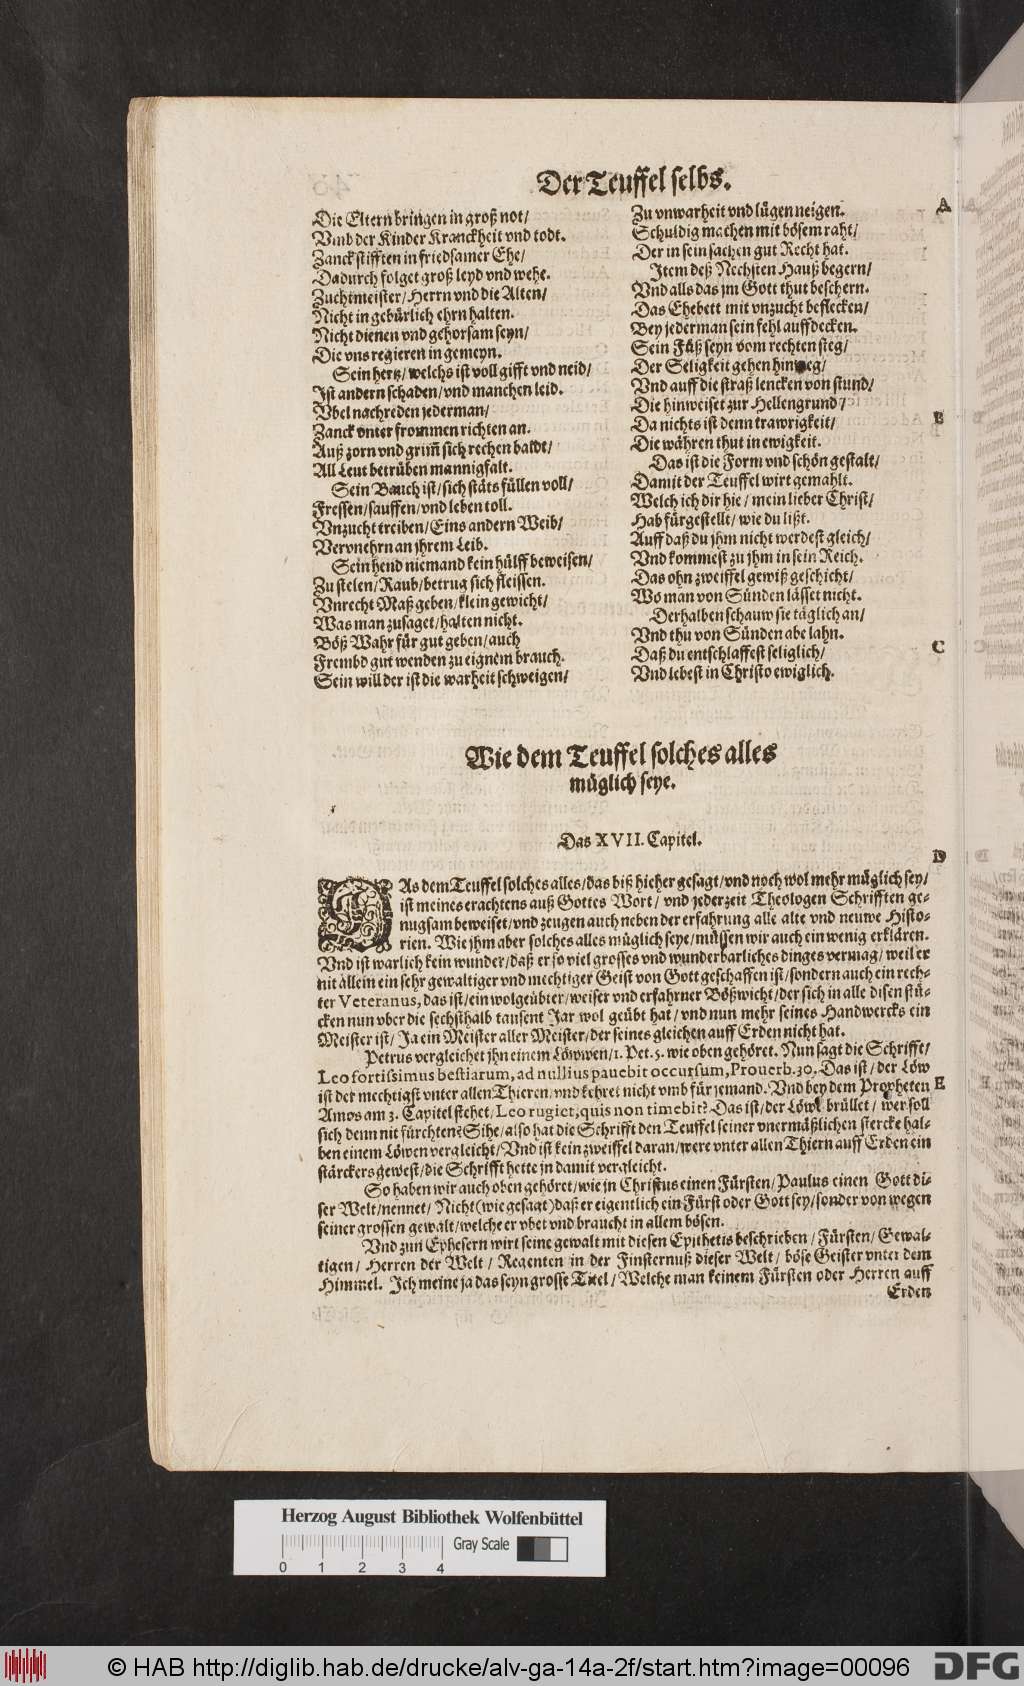 Der Teuffel selbs.
Die Eltern bringen in groß not/
Vmb der Kinder Kranckheit vnd todt.
Zanck stifften in friedsamer Ehe/
Dadurch folget groß leyd vnd wehe.
Zuchtmeister/ Herrn vnd die Alten/
Nicht in gebürlich ehrn halten.
Nicht dienen vnd gehorsam seyn/
Die vns regieren in gemeyn.
Sein hertz/ welchs ist voll gifft vnd neid/
Ist andern schaden/ vnd manchen leid.
Vbel nachreden jederman/
Zanck vnter frommen richten an.
Auß zorn vnd grim̃ sich rechen baldt/
All Leut betrüben mannigfalt.
Sein Bauch ist/ sich stäts füllen voll/
Fressen/ sauffen/ vnd leben toll.
Vnzucht treiben/ Eins andern Weib/
Vervnehrn an jhrem Leib.
Sein hend niemand kein hülff beweisen/
Zu stelen/ Raub/ betrug sich fleissen.
Vnrecht Maß geben/ klein gewicht/
Was man zusaget/ halten nicht.
Böß Wahr für gut geben/ auch
Frembd gut wenden zu eignem brauch.
Sein will der ist die warheit schweigen/
Zu vnwarheit vnd lügen neigen.
Schuldig machen mit bösem raht/
Der in sein sachen gut Recht hat.
Item deß Nechsten Hauß begern/
Vnd alls das jm Gott thut beschern.
Das Ehebett mit vnzucht beflecken/
Bey jederman sein fehl auffdecken.
Sein Füß seyn vom rechten steg/
Der Seligkeit gehen hinweg/
Vnd auff die straß lencken von stund/
Die hinweiset zur Hellengrund/
Da nichts ist denn trawrigkeit/
Die währen thut in ewigkeit.
Das ist die Form vnd schön gestalt/
Damit der Teuffel wirt gemahlt.
Welch ich dir hie/ mein lieber Christ/
Hab fürgestellt/ wie du lißt.
Auff daß du jhm nicht werdest gleich/
Vnd kommest zu jhm in sein Reich.
Das ohn zweiffel gewiß geschicht/
Wo man von Sünden lässet nicht.
Derhalben schauw sie täglich an/
Vnd thu von Sünden abe lahn.
Daß du entschlaffest seliglich/
Vnd lebest in Christo ewiglich.
A
B
C
Wie dem Teuffel solches alles
müglich seye.
Das XVII. Capitel.
D
DAs dem Teuffel solches alles/ das biß hieher gesagt/ vnd noch wol mehr müglich sey/
ist meines erachtens auß Gottes Wort/ vnd jederzeit Theologen Schrifften ge-
nugsam beweiset/ vnd zeugen auch neben der erfahrung alle alte vnd neuwe Histo-
rien. Wie jhm aber solches alles müglich seye/ müssen wir auch ein wenig erklären.
Vnd ist warlich kein wunder/ daß er so viel grosses vnd wunderbarliches dinges vermag/ weil er
nit allein ein sehr gewaltiger vnd mechtiger Geist von Gott geschaffen ist/ sondern auch ein rech-
ter Veteranus, das ist/ ein wolgeübter/ weiser vnd erfahrner Bößwicht/ der sich in alle disen stü-
cken nun vber die sechsthalb tausent Jar wol geübt hat/ vnd nun mehr seines Handwercks ein
Meister ist/ Ja ein Meister aller Meister/ der seines gleichen auff Erden nicht hat.
Petrus vergleichet jhn einem Löwwen/ 1. Pet. 5. wie oben gehöret. Nun sagt die Schrifft/
Leo fortissimus bestiarum, ad nullius pauebit occursum, Prouerb. 30. Das ist/ der Löw
ist der mechtigst vnter allen Thieren/ vnd kehret nicht vmb für jemand. Vnd bey dem Propheten
E
Amos am 3. Capitel stehet/ Leo rugiet, quis non timebit? Das ist/ der Löw brüllet/ wer soll
sich denn nit fürchten? Sihe/ also hat die Schrifft den Teuffel seiner vnermäßlichen stercke hal-
ben einem Löwen vergleicht/ Vnd ist kein zweiffel daran/ were vnter allen Thiern auff Erden ein
stärckers gewest/ die Schrifft hette jn damit vergleicht.
So haben wir auch oben gehöret/ wie jn Christus einen Fürsten/ Paulus einen Gott di-
ser Welt/ nennet/ Nicht (wie gesagt) daß er eigentlich ein Fürst oder Gott sey/ sonder von wegen
seiner grossen gewalt/ welche er vbet vnd braucht in allem bösen.
Vnd zun Ephesern wirt seine gewalt mit diesen Epithetis beschrieben/ Fürsten/ Gewal-
tigen/ Herren der Welt/ Regenten in der Finsternuß dieser Welt/ böse Geister vnter dem
Himmel. Ich meine ja das seyn grosse Titel/ Welche man keinem Fürsten oder Herren auff
Erden
Herzog August Bibliothek Wolfenbüttel
Gray Scale
0 1 2 3 4
© HAB http://diglib.hab.de/drucke/alv-ga-14a-2f/start.htm?image=00096
DFG